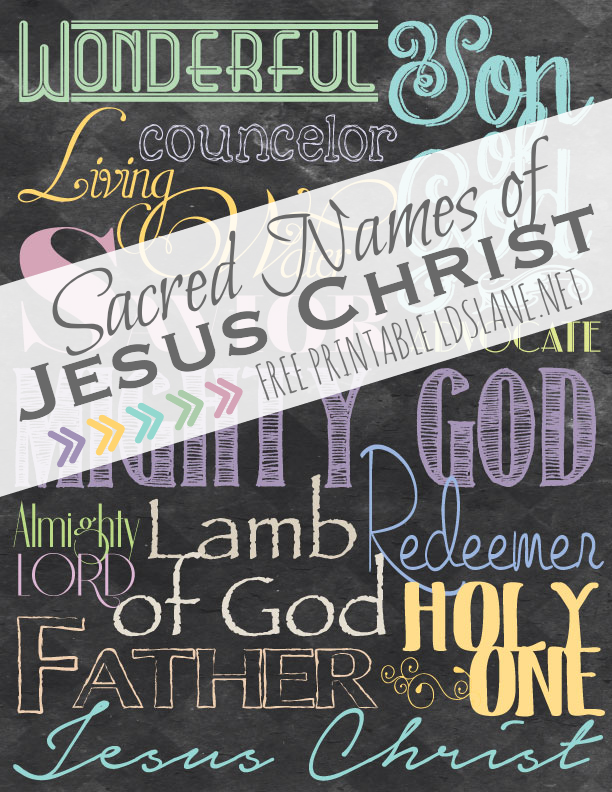 WONDERFUL
Son
of
God
counselor
Living
Water
SAVIOR
Sacred Names of
JESUS CHRIST
FREE PRINTABLE LDSLANE.NET
ADVOCATE
MIGHTY GOD
Almighty
LORD
Lamb
of God
Redeemer
HOLY
ONE
FATHER
Jesus Christ